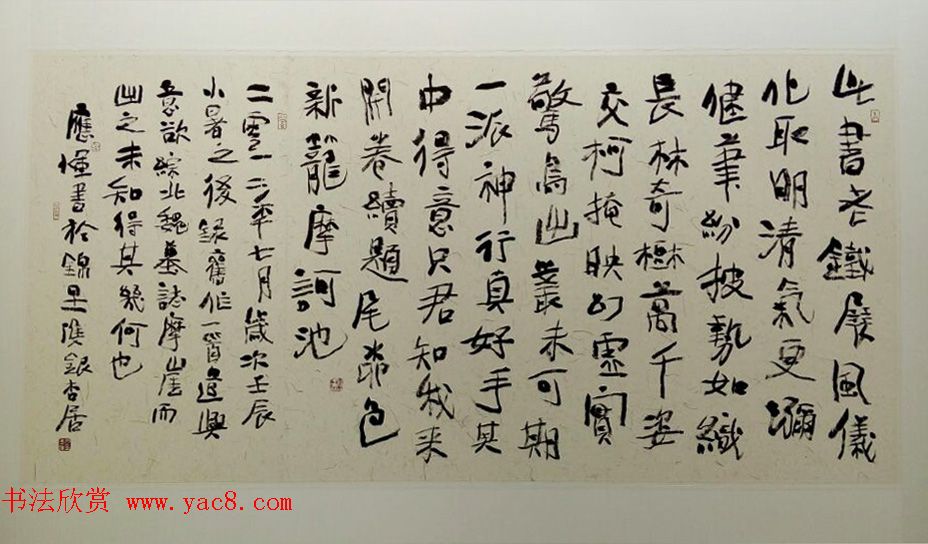 此書老鐵展風儀
化取明清氣更瀰
健筆紛披勢如織
長林奇樹萬千姿
交柯掩映幻虛實
驚鳥出叢未可期
一派神行真好手其
中得意只君知我來
開卷續題尾黛色
新籠摩訶池
二零一二年七月歲次壬辰
小暑之後錄舊作一首遣興
意欲綜北魏墓誌摩山崖而
出之未知得其幾何也
應恒書於錦里雙銀杏居
书法欣赏 www.yac8.com